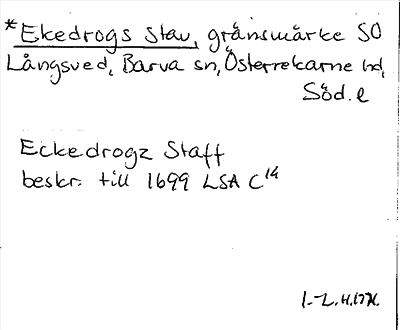 *Ekedrogs Stav, gränsmärke SO
Långsved, Barva sn, Österrekarne hd,
Söd. l
Eckedrogz Staff
beskr. till 1699 LSA C14